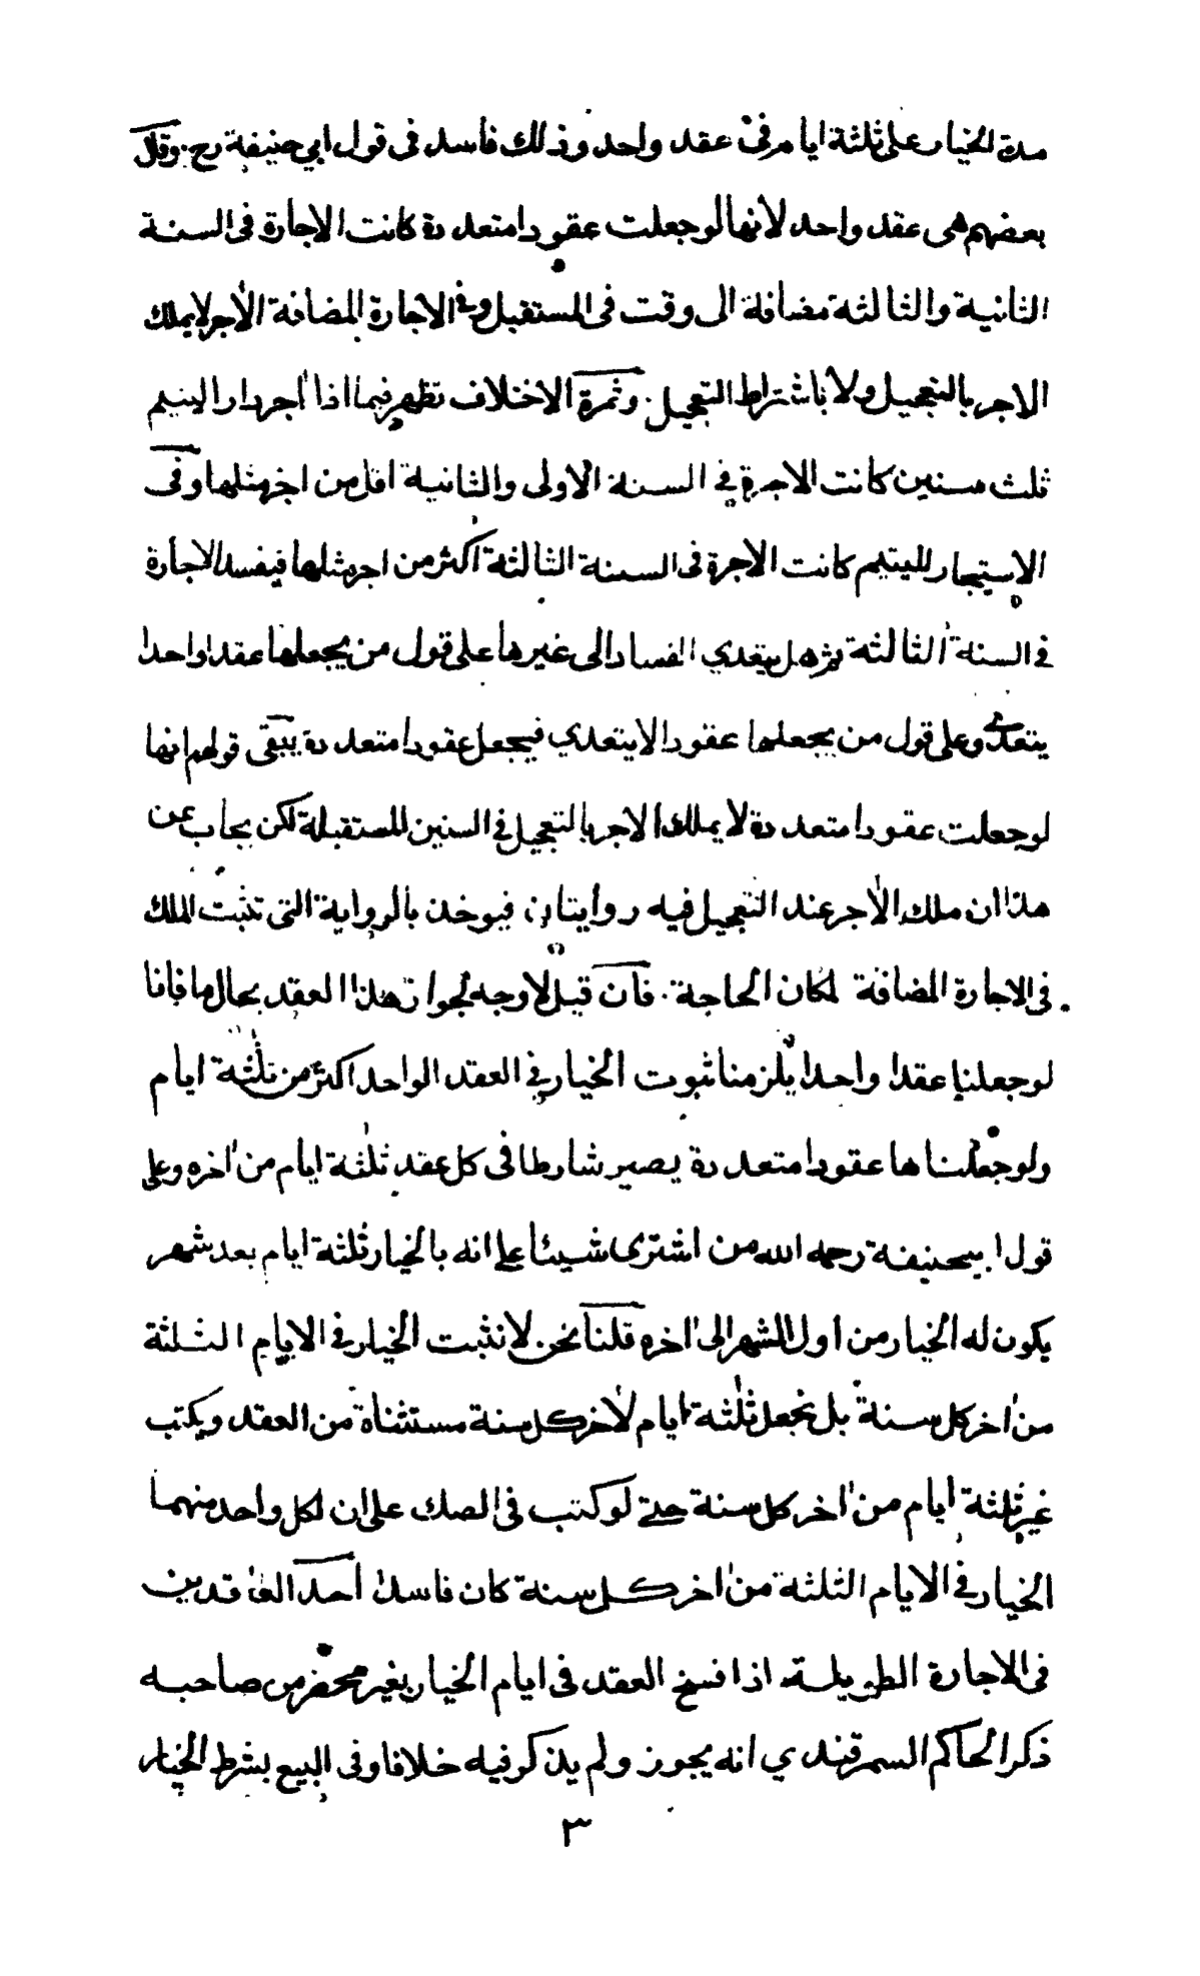 مدة الخيار على ثلثة ايام في عقد واحد وذلك فاسد فى قول ابي حنيفة رح وقال
بعضهم هى عقد واحد لانها لو جعلت عقودا متعددة كانت الاجارة فى السنة
الثانية والثالثة مضافة الى وقت فى المستقبل وفى الاجارة المضافة الآجر لا يملك
الاجر بالتعجيل ولا باشتراط التعجيل وثمرة الاختلاف تظهر فيما اذا آجر دار اليتيم
ثلث سنين كانت الاجرة في السنة الاولى والثانية اقل من اجر مثلها وفى
الاستيجار لليتيم كانت الاجرة فى السنة الثالثة اكثر من اجر مثلها فيفسد الاجارة
في السنة الثالثة ثم هل يتعدي الفساد الى غيرها على قول من يجعلها عقدا واحدا
يتعدى وعلى قول من يجعلها عقودا لا يتعدي فيجعل عقودا متعددة يبقى قولهم انها
لو جعلت عقودا متعددة لا يملك الاجر بالتعجيل فى السنين المستقبلة لكن يجاب عن
هذا ان ملك الاجر عند التعجيل فيه روايتان فيوخذ بالرواية التى تثبت الملك
فى الاجارة المضافة لمكان الحاجة فان قيل لا وجه لجواز هذا العقد بحال ما فانا
لو جعلنا عقدا واحدا يلزمنا ثبوت الخيار في العقد الواحد اكثر من ثلثة ايام
ولو جعلناها عقودا متعددة يصير شارطا فى كل عقد ثلثة ايام من آخره وعلى
قول ابيحنيفة رحمه الله من اشترى شيئا على انه بالخيار ثلثة ايام بعد شهر
يكون له الخيار من اول الشهر الى آخره قلنا نحن لا نثبت الخيار في الايام الثلثة
من آخر كل سنة بل نجعل ثلثة ايام لآخر كل سنة مستثناة من العقد ويكتب
غير ثلثة ايام من آخر كل سنة حتے لو كتب فى الصك على ان لكل واحد منهما
الخيار في الايام الثلثة من آخر كل سنة كان فاسدا احد العاقدين
فى الاجارة الطويلة اذا فسخ العقد فى ايام الخيار بغير محضر من صاحبه
ذكر الحاكم السمرقندي انه يجوز ولم يذكر فيه خلافا وفى البيع بشرط الخيار
٣